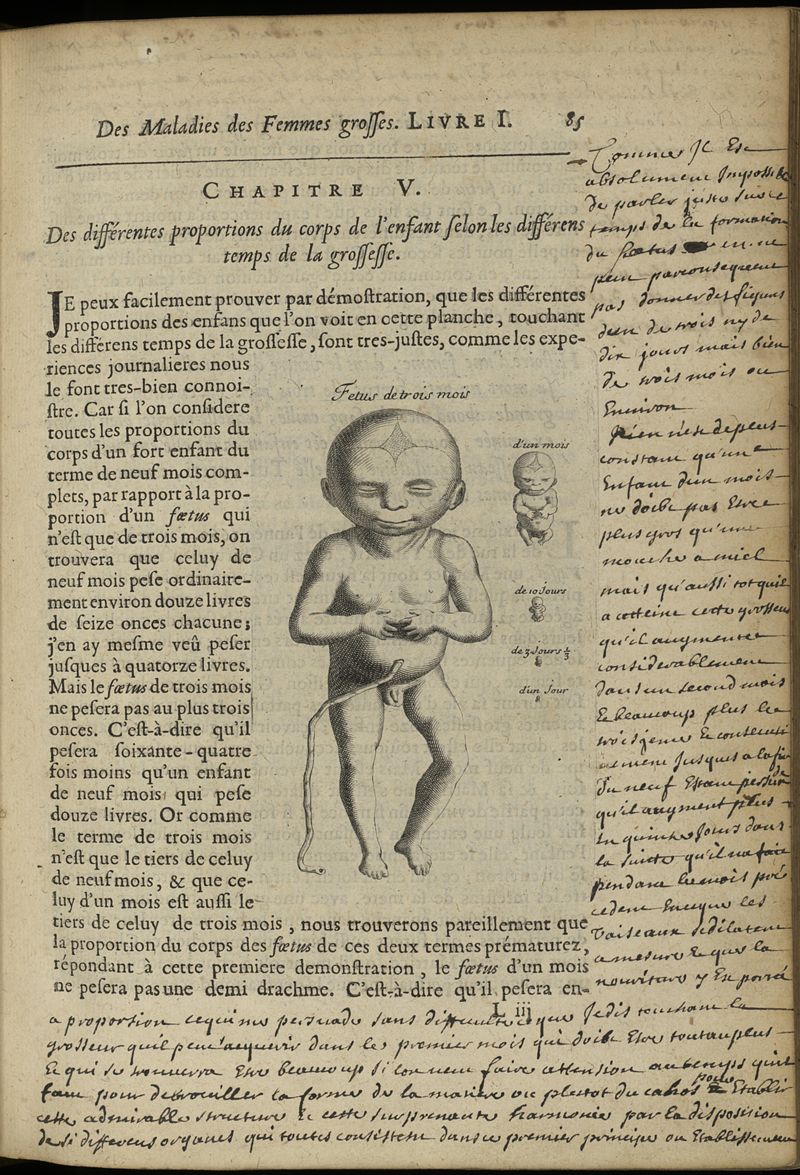 Des Maladies des Femmes grosses. LIVRE I. 85
CHAPITRE V.
Des différentes proportions du corps de l'enfant selon les différens
temps de la grossesse.
JE peux facilement prouver par démostration, que les différentes
proportions des enfans que l'on voit en cette planche, touchant
les différens temps de la grossesse, sont tres-justes, comme les expe-
riences journalieres nous
le font tres-bien connoi-
stre. Car si l'on considere
toutes les proportions du
corps d'un fort enfant du
terme de neuf mois com-
plets, par rapport à la pro-
portion d'un fœtus qui
n'est que de trois mois, on
trouvera que celuy de
neuf mois pese ordinaire-
ment environ douze livres
de seize onces chacune;
j'en ay mesme veû peser
jusques à quatorze livres.
Mais le fœtus de trois mois
ne pesera pas au plus trois
onces. C'est-à-dire qu'il
pesera soixante-quatre
fois moins qu'un enfant
de neuf mois qui pese
douze livres. Or comme
le terme de trois mois
n'est que le tiers de celuy
de neuf mois, & que ce-
luy d'un mois est aussi le
tiers de celuy de trois mois, nous trouverons pareillement que
la proportion du corps des fœtus de ces deux termes prématurez,
répondant à cette premiere demonstration, le fœtus d'un mois
ne pesera pas une demi drachme. C'est-à-dire qu'il pesera en-
L iij
Fetus de trois mois
d'un mois
de 10 Jours
de 3 Jours 1/3
d'un Jour
Comme Jl Est
absolument Impossible
de parler juste sur ce
temps de la formation
du foetus en ne
peut par consequent
pas donner des figures
de trois ny de
dix jours mais bien
de trois mois ou
Environ
Rien n'est de plus
constant qu'une
Enfant d'un mois
ne doibt pas Estre
plus gros qu'une
mouche a miel
mais qu'aussi tot quil
a atteint cette grosseur
qu'il augmente
considerablement
dans un second mois
Et beaucoup plus le
troisieme Et
Jusques a la fin
du neuf
qu'il augment plus
En quinze Jours dans
la suite qu'il ne fait
pendant le mois
les
Vaisseaux se dilatent
a mesure Et que la
nourriture y Est portée
a proportion ce qui me persuade sans difficulté que Je dis touchant la
grosseur quil peut acquerir dans les premiers mois qui doibt Estre tout au plus
Et qui se trouvera Estre beaucoup si lon veut faire attention au temps quil
faut pour debrouiller la forme de la matiere ou plustot du cahos pour Etablir
cette admirable structure Et cette surprenante harmonie par la disposition
de si differens organes qui toutes consistent dans ce premier principe ou Etablissement